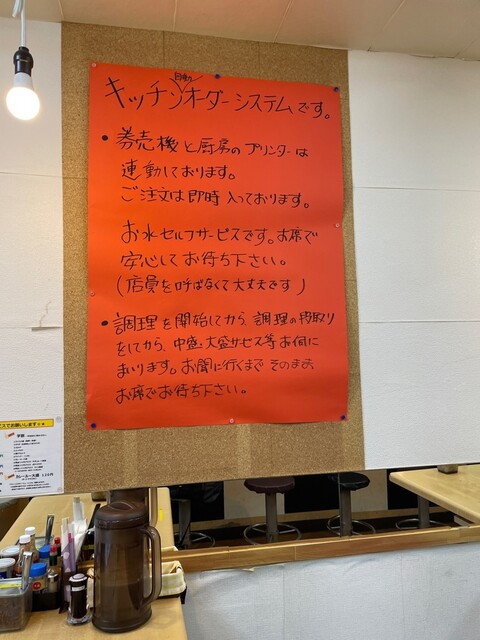 キッチン自動オーダーシステムです。
• 券売機と厨房のプリンターは
連動しております。
ご注文は即時入っております。
お水セルフサービスです。お席で
安心してお待ち下さい。
(店員を呼ばなくて大丈夫です)
• 調理を開始してから、調理の段取り
をしてから、中盛、大盛サービス等お伺に
まいります。お聞に行くまでそのまま、
お席でお待ち下さい。